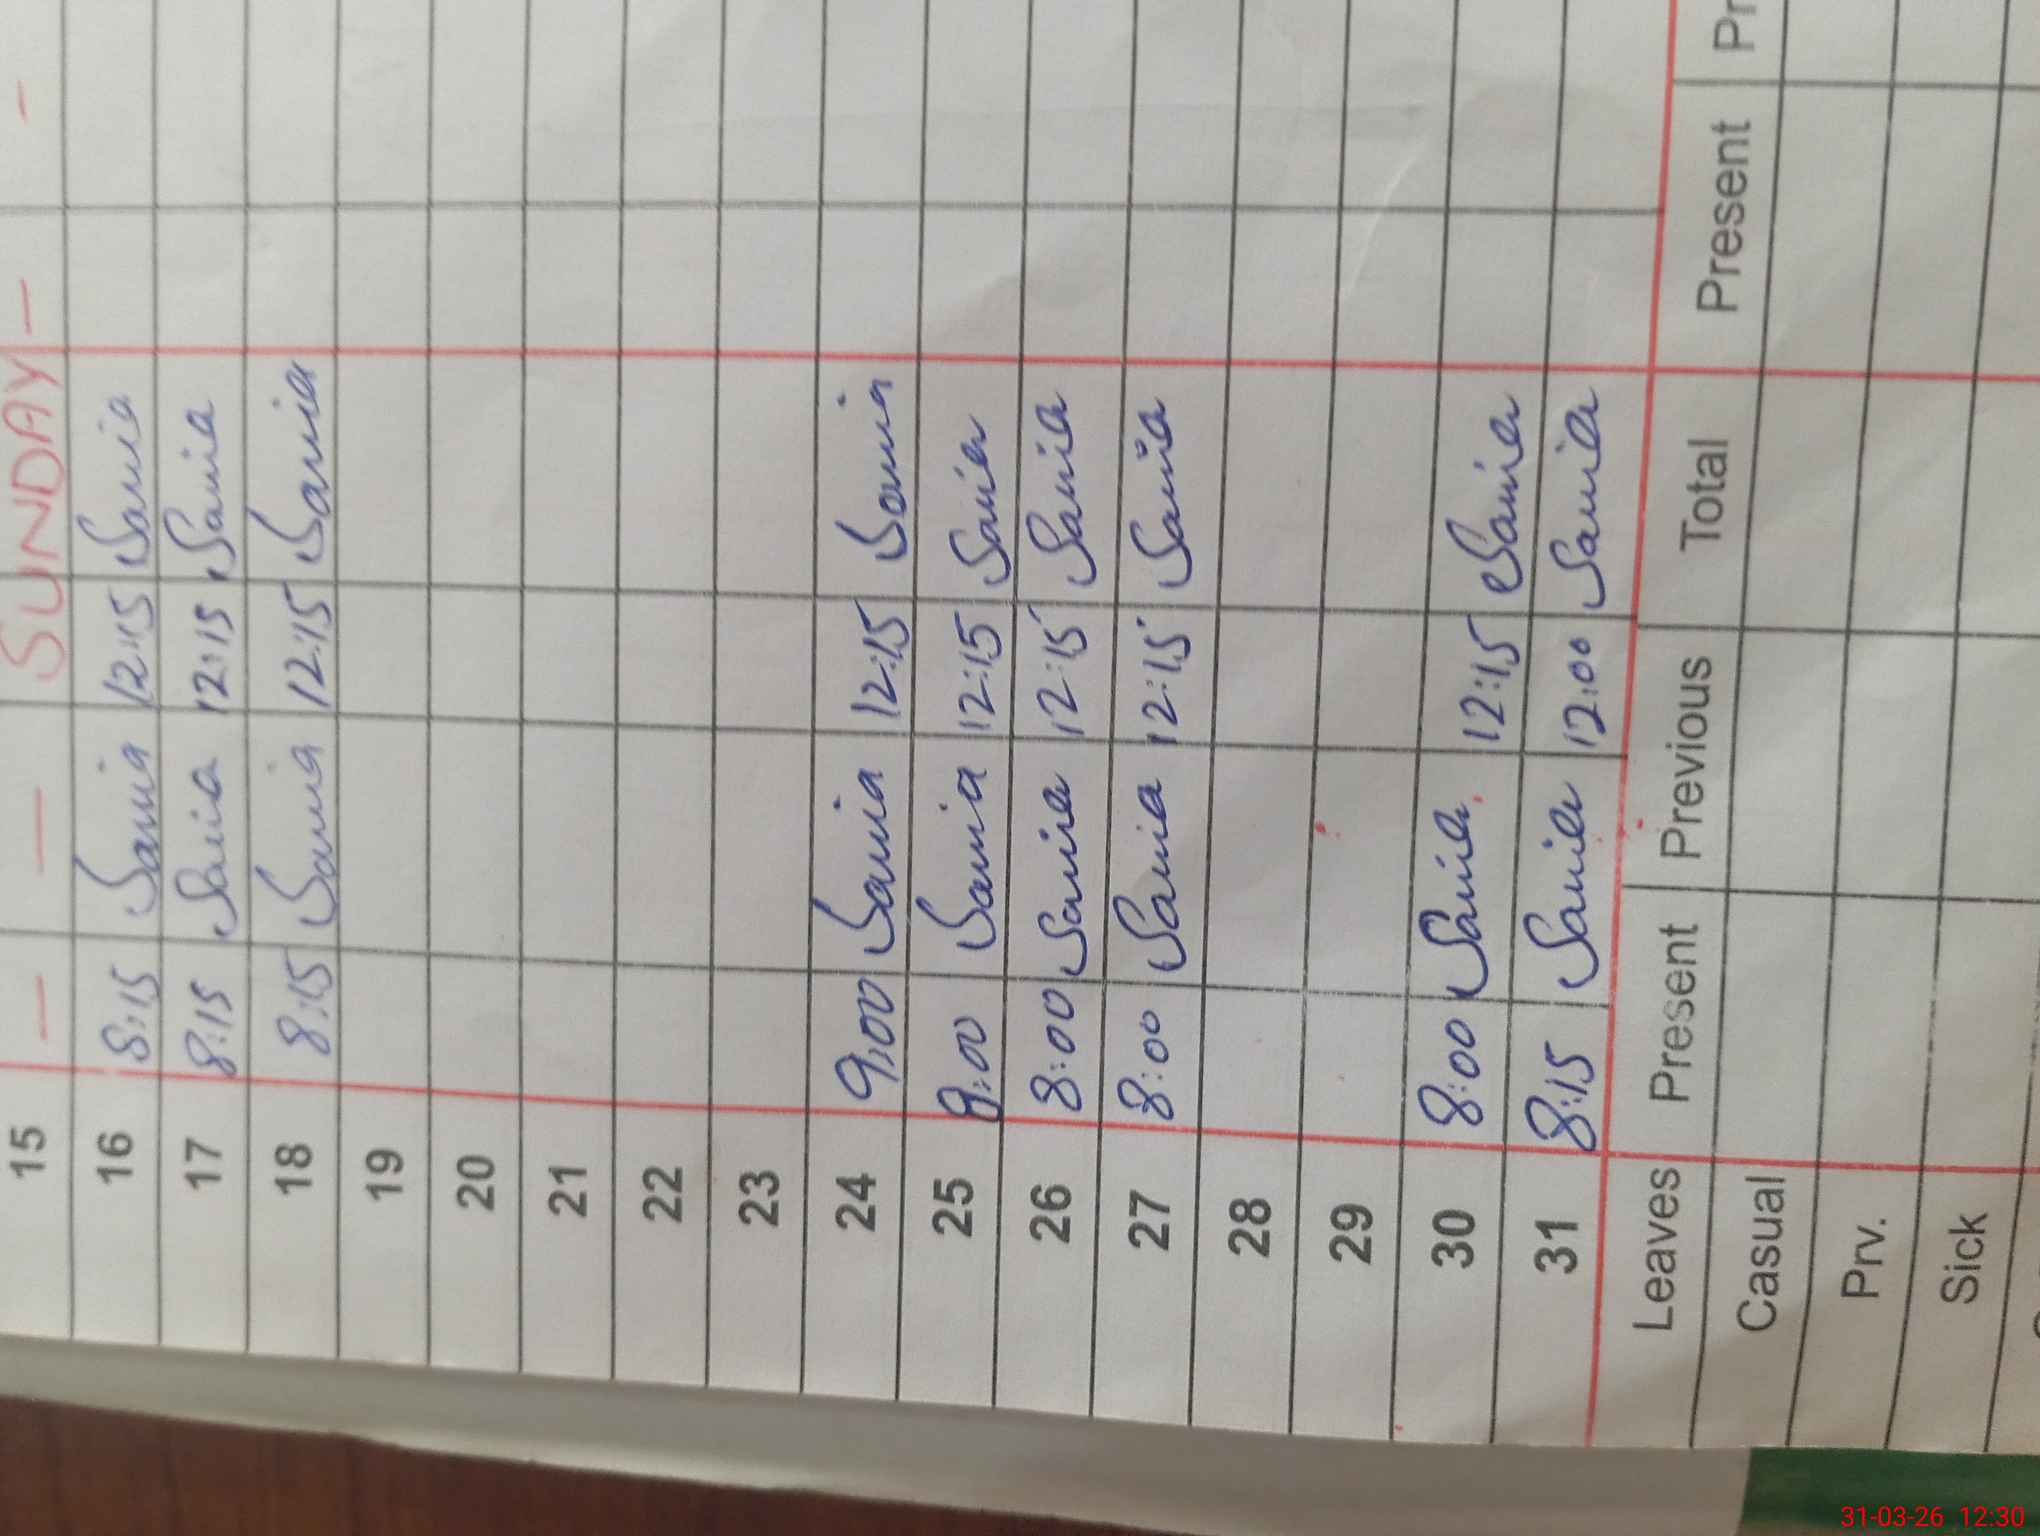 15 — — SUNDAY — -
16 8:15 Sania 12:15 Sania
17 8:15 Sania 12:15 Sania
18 8:15 Sania 12:15 Sania
19
20
21
22
23
24 9:00 Sania 12:15 Sania
25 8:00 Sania 12:15 Sania
26 8:00 Sania 12:15 Sania
27 8:00 Sania 12:15 Sania
28
29
30 8:00 Sania 12:15 Sania
31 8:15 Sania 12:00 Sania
Leaves Present Previous Total Present Pr
Casual
Prv.
Sick
31-03-26 12:30